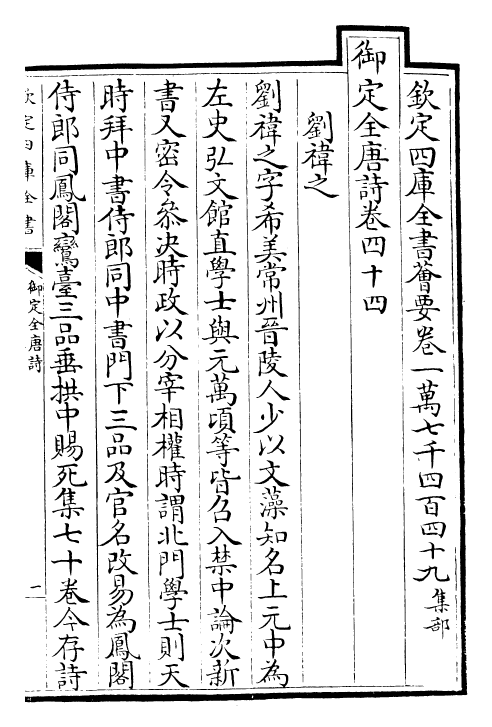 欽定四庫全書薈要卷一萬七千四百四十九集部
御定全唐詩卷四十四
劉禕之
劉禕之字希美常州晉陵人少以文藻知名上元中為
左史弘文館直學士與元萬頃等皆召入禁中論次新
書又密令叅决時政以分宰相權時謂北門學士則天
時拜中書侍郎同中書門下三品及官名改易為鳳閣
侍郎同鳳閣鸞臺三品垂拱中賜死集七十卷今存詩
欽定四庫全書
御定全唐詩
二